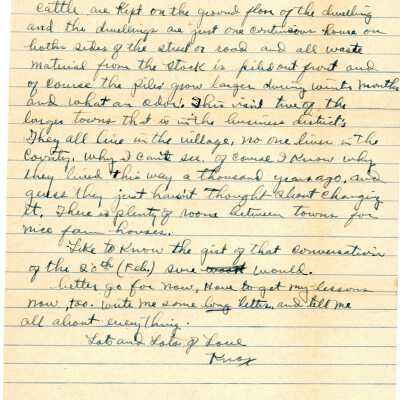 cattle are kept on the ground floor of the dwelling
and the dwellings are just one continuous house on
both sides of the street or road and all waste
material from the stock is piled out front and
of course the piles grow larger during winter months
and what an odor. This isn't true of the
larger towns that is in the business districts.
They all live in the village, no one lives in the
County, why I can't see. of course I know why
they lived this way a thousand years ago, and
guess they just haven't thought about changing
it. There is plenty of room between towns for
nice farm houses.
Like to know the gist of that conversation
of the 20th (Feb.) sure would.
better go for now, Have to get my lessons
now, too. write me some long letters, and tell me
all about everything.
Lots and Lots of Love
Knox